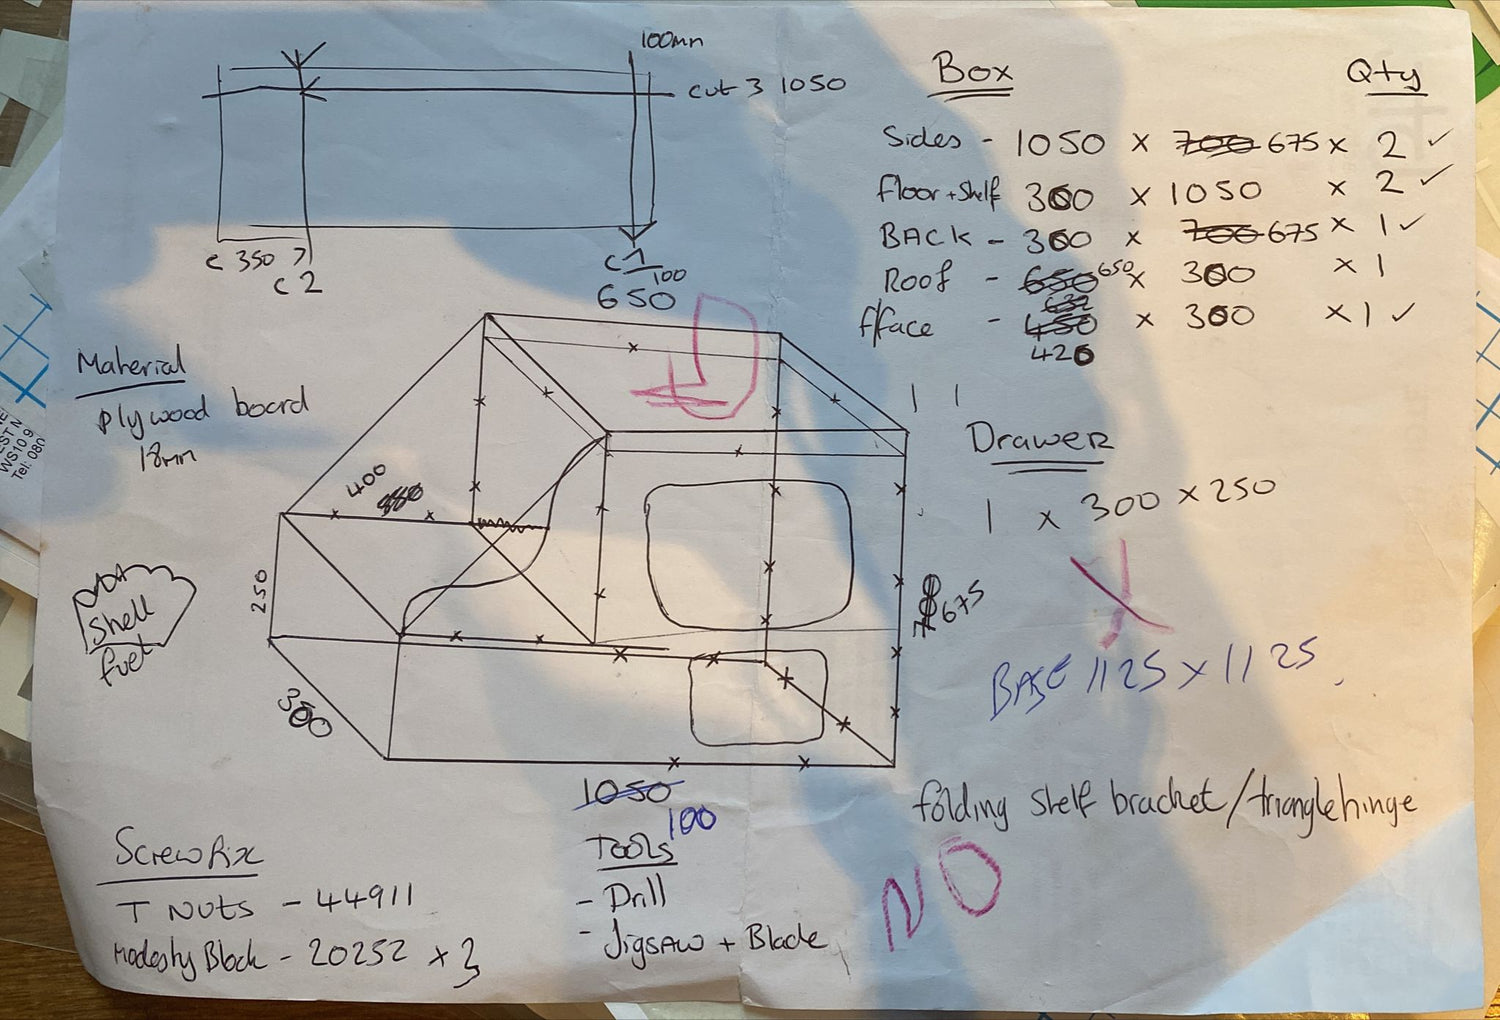 100mm
cut 3 1050
c 350
c 2
c 1
100
650
Box Qty
Sides - 1050 x 700 675 x 2 ✓
floor + Shelf 300 x 1050 x 2 ✓
BACK - 300 x 700 675 x 1 ✓
Roof - 650 650 x 300 x 1
632
f/face - 450 x 300 x 1 ✓
420
Material
Plywood board
18mm
400
250
300
Shell
fuel
700 675
1050
100
Drawer
1 x 300 x 250
BASE 1125 x 1125
folding shelf bracket/triangle hinge
NO
Screwfix
T NUTS - 44911
Modesty Block - 20252 x 3
Tools
- Drill
- Jigsaw + Blade
EST N
WS10 9
Tel: 080